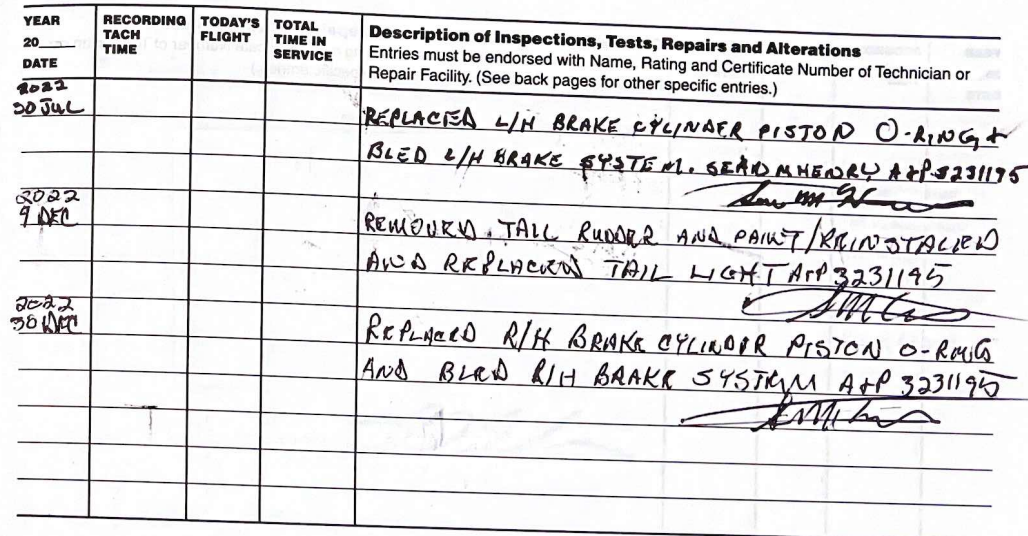 YEAR
20
DATE
RECORDING
TACH
TIME
TODAY'S
FLIGHT
TOTAL
TIME IN
SERVICE
Description of Inspections, Tests, Repairs and Alterations
Entries must be endorsed with Name, Rating and Certificate Number of Technician or
Repair Facility. (See back pages for other specific entries.)
2022
30 JUL
REPLACED L/H BRAKE CYLINDER PISTON O-RING, +
BLED L/H BRAKE SYSTEM. SEAN M HENRY A+P 3231195
2022
9 DEC
REMOVED TAIL RUDDER AND PAINT/REINSTALLED
AND REPLACED TAIL LIGHT A+P 3231195
2022
30 DEC
REPLACED R/H BRAKE CYLINDER PISTON O-RING
AND BLED R/H BRAKE SYSTEM A+P 3231195